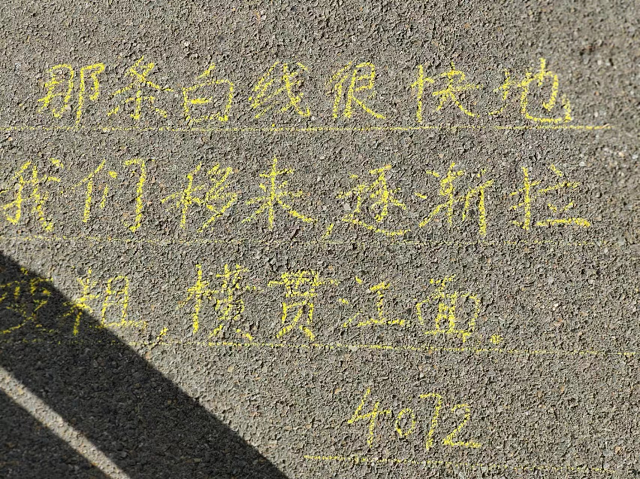 那条白线很快地
我们移来,逐渐拉
变粗,横贯江面。
4072